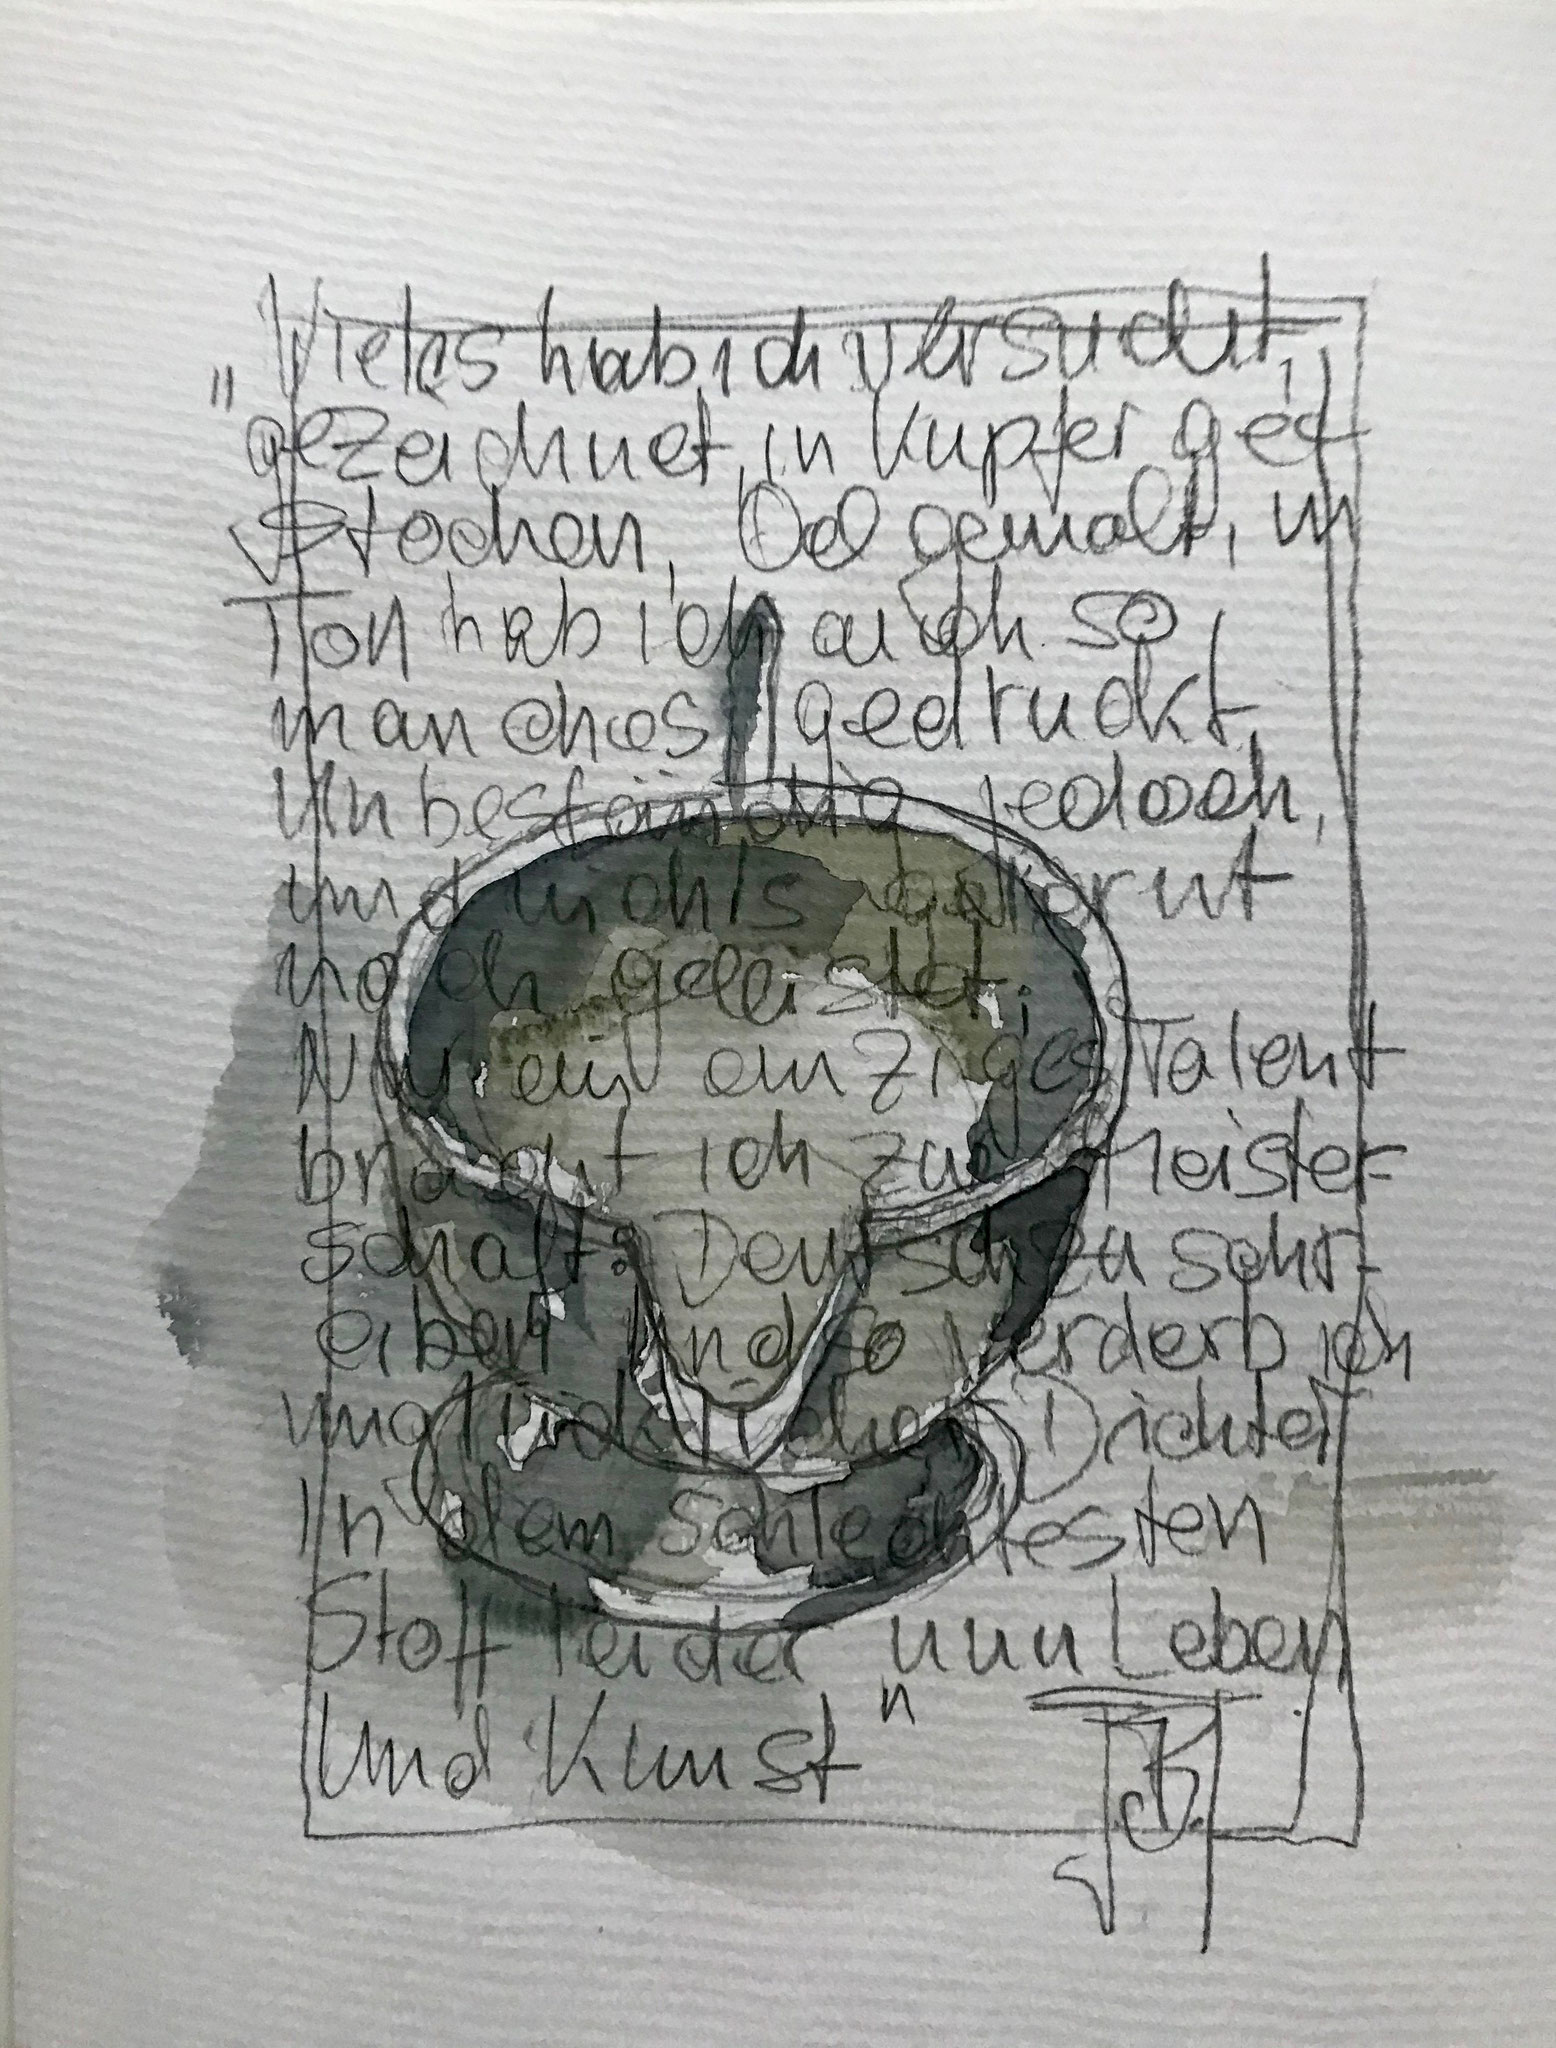 "Vieles hab ich versucht,
gezeichnet, in Kupfer ge-
stochen, Oel gemalt, in
Ton hab ich auch so
manches gedruckt,
Unbeständig jedoch,
und nichts gelernt
noch geleistet;
Nur ein einziges Talent
bracht ich zur Meister-
schaft: Deutsch zu schr-
eiben Und so verderb ich
unglücklicher Dichter
In dem schlechtesten
Stoff leider nun Leben
Und Kunst"